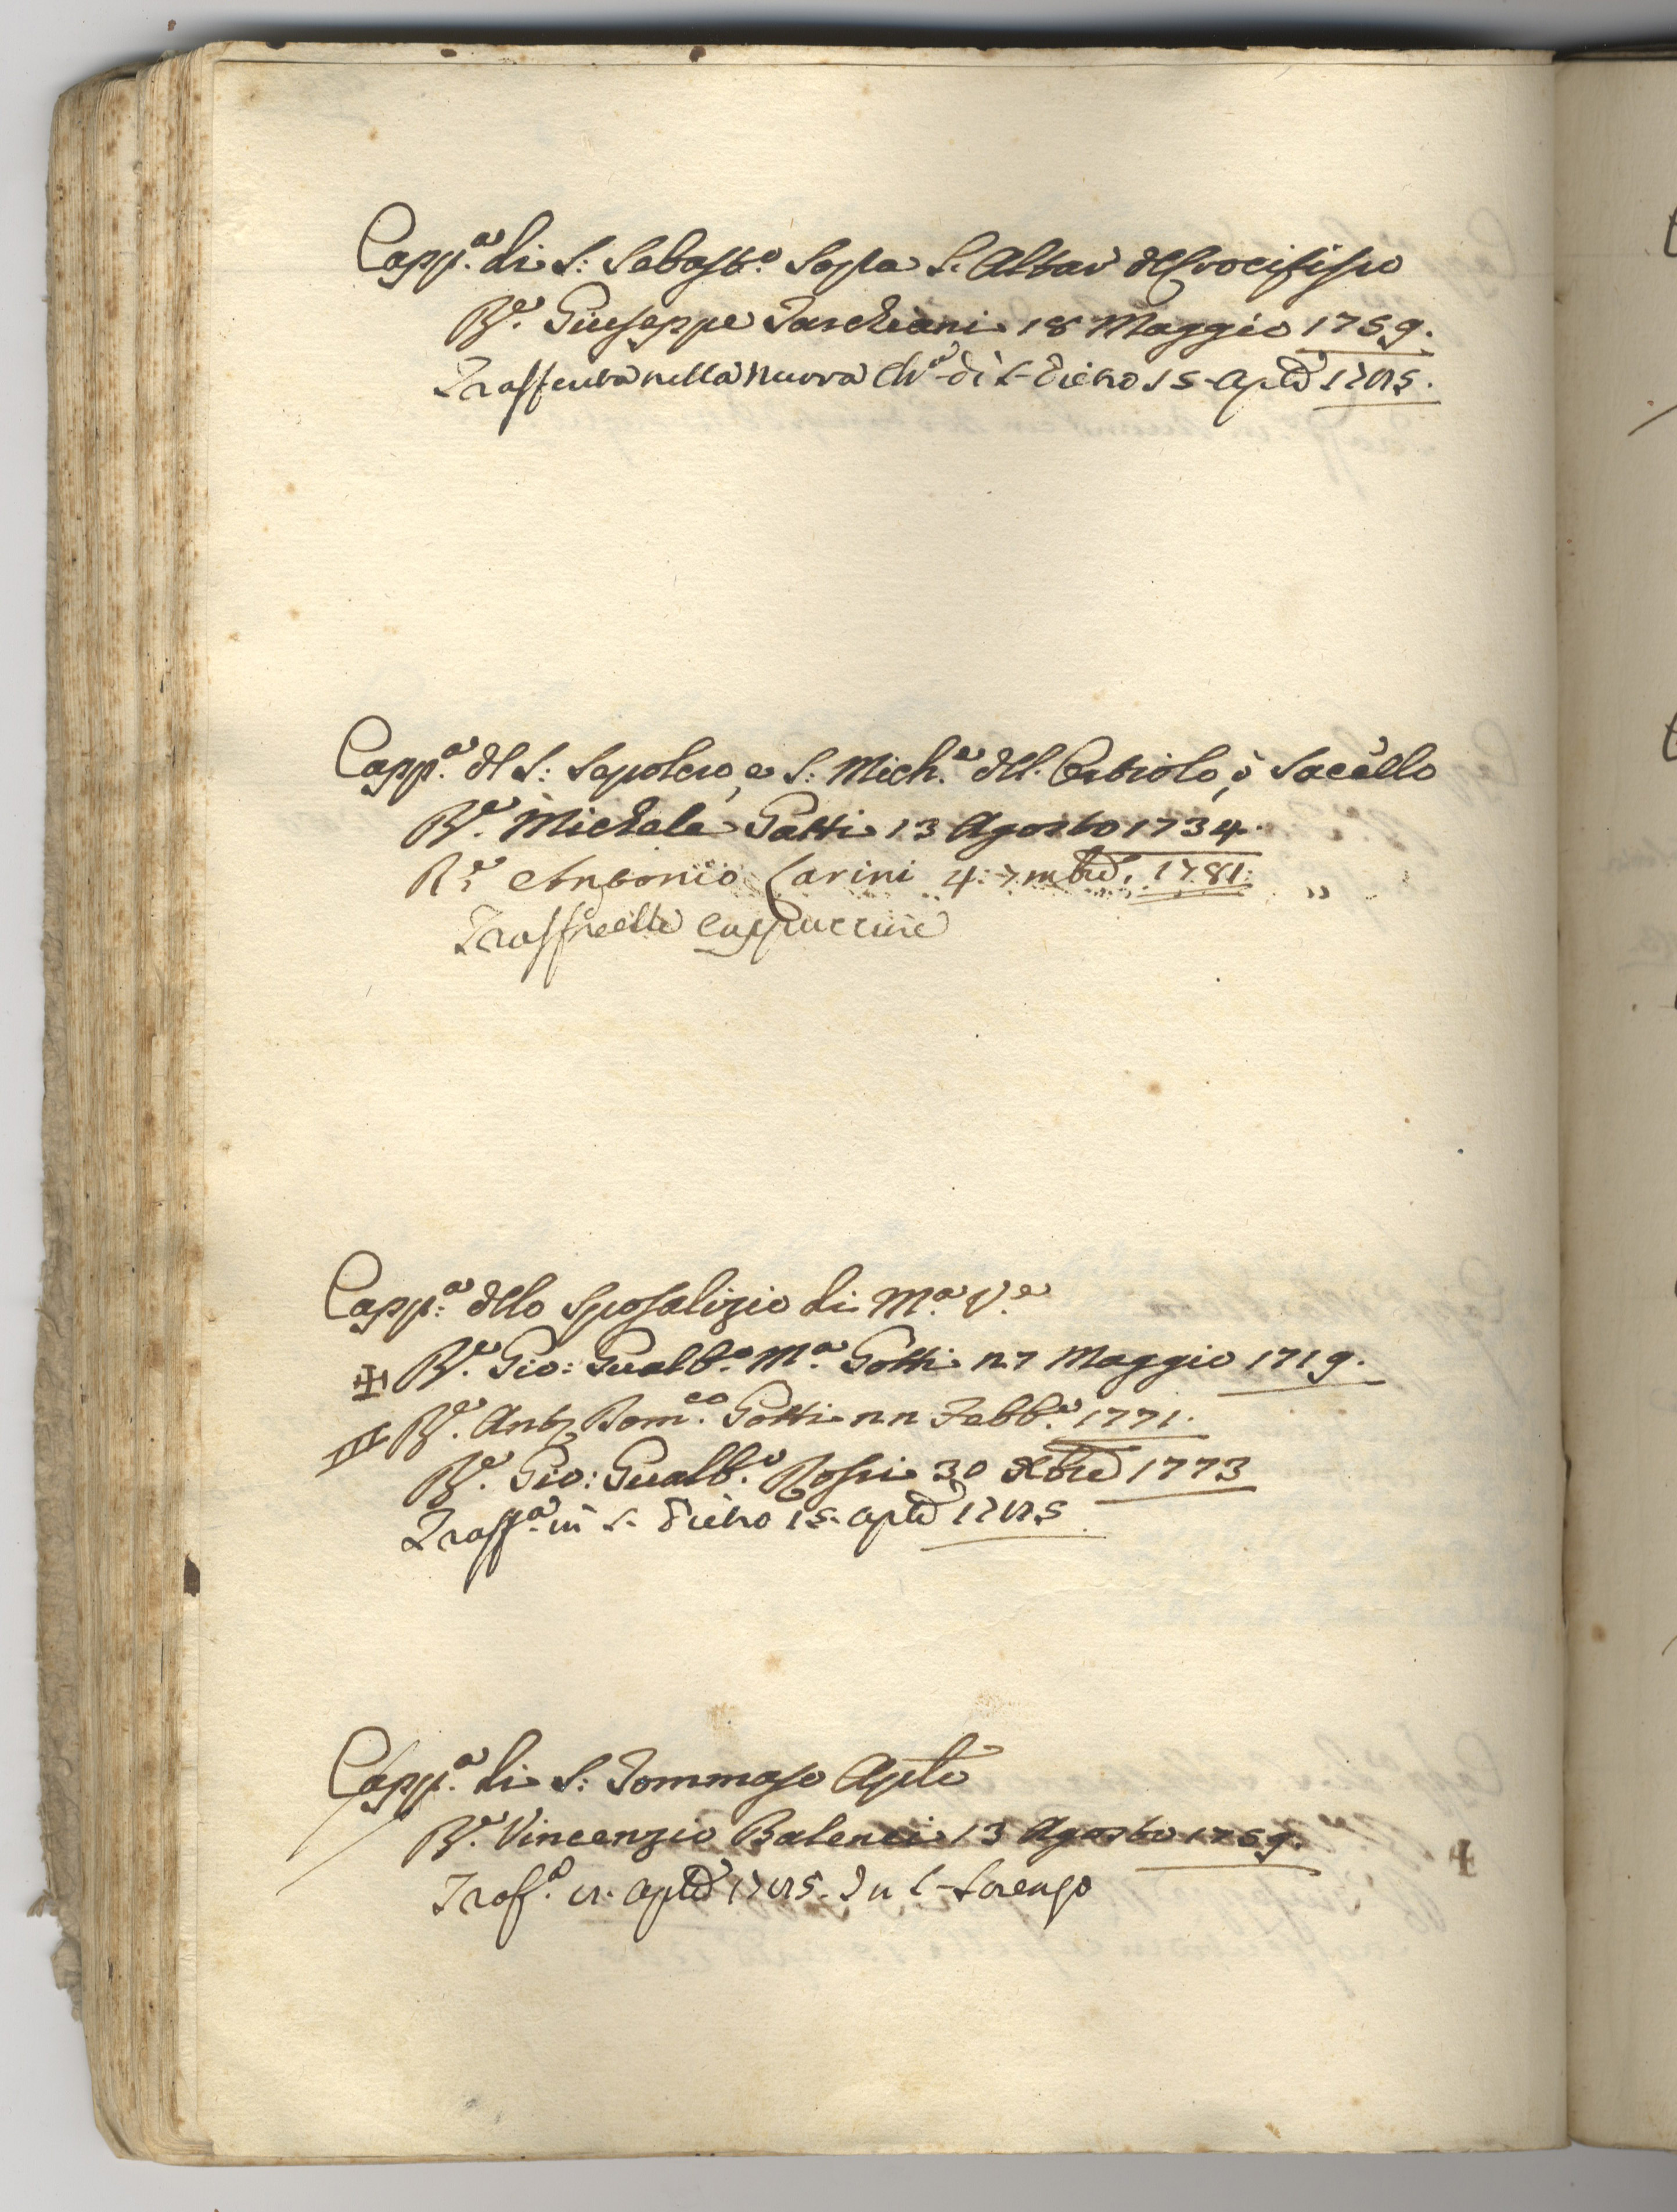 Capp.a di S: Sebast.o Sopra l'Altar del Crocifisso
R.e Giuseppe Tarchiani 18 Maggio 1759.
Trasferita nella nuova Ch.a di S. Pietro 15 Aple 1785.
Capp.a del S: Sepolcro, e S: Mich.e dell' Orbiolo, ò Sacello
R.e Michele Gatti 13 Agosto 1734.
R.e Antonio Carini 4: 7mbre. 1781.
Trasf. nelle Cappuccine
Capp.a dello Sposalizio di M.a V.e
R.e Gio: Gualb.o M.a Gotti 27 Maggio 1719.
R.e Ant. Dom.co Gotti 22 Febb.o 1771.
R.e Gio: Gualb.o Rossi 30 Xbre 1773
Trasf.a in S. Pietro 15. aple 1785
Capp.a di S: Tommaso Aplo
R.e Vincenzio Balenci 13 Agosto 1759.
Trasf.a aple 1785. In S. Lorenzo